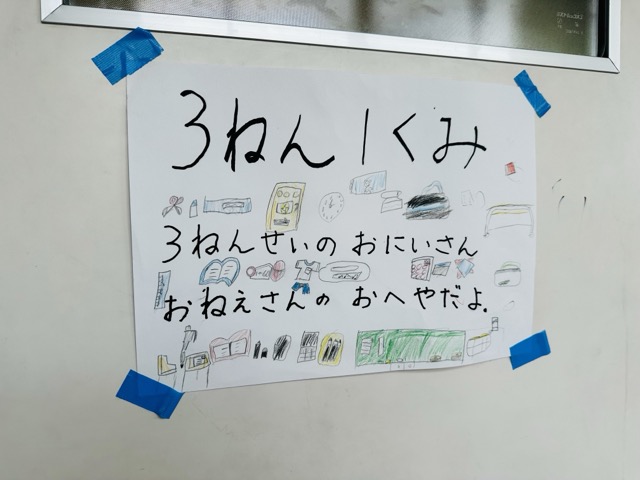 3ねん1くみ
3ねんせいの おにいさん
おねえさんの おへやだよ.